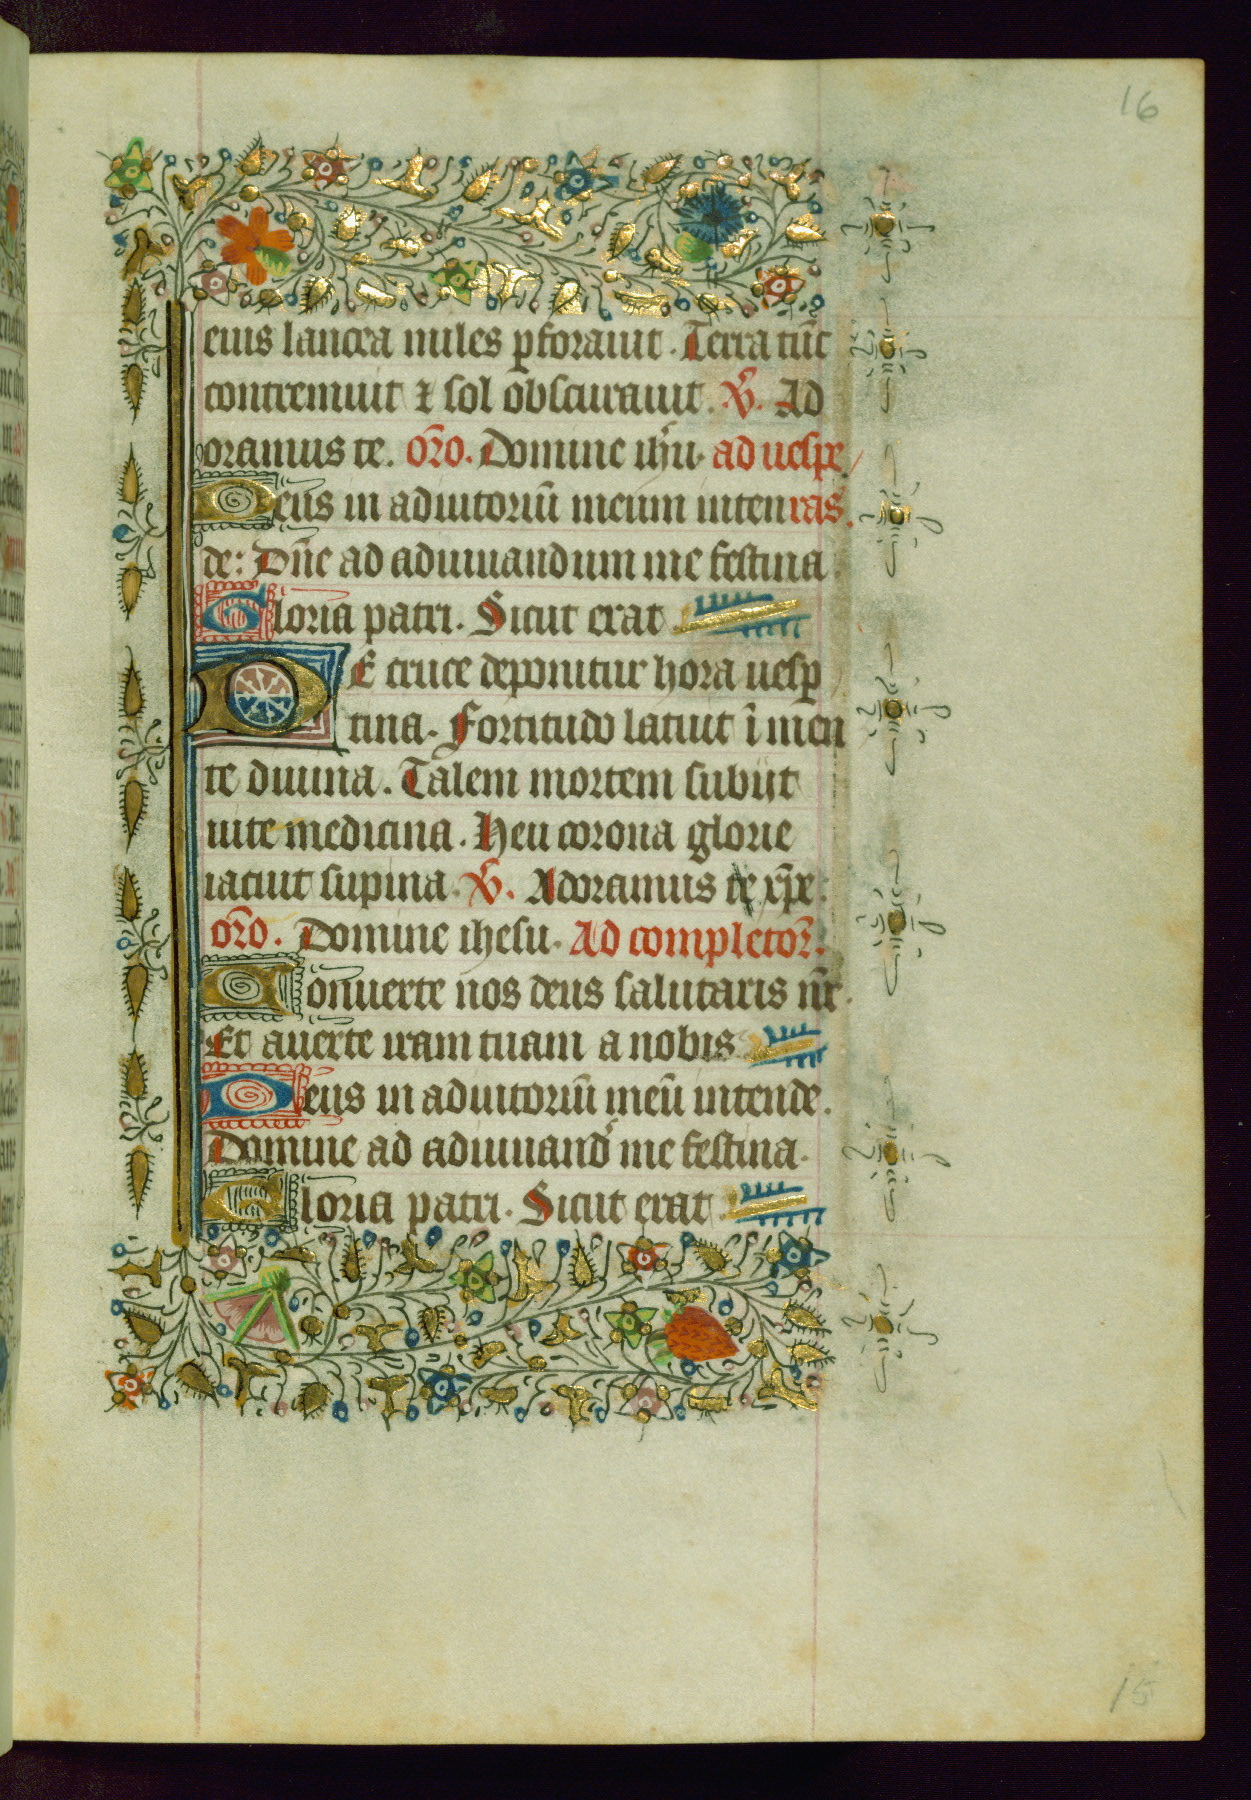 16
eius lancea miles ꝑforauit. Terra tūc
contremuit ⁊ sol obscurauit. ℣. Ad
oramus te. or̄o. Domine ih̄u. ad uespe
Deus in adiutoriū meum inten ras.
de: Dn̄e ad adiuuandum me festina.
Gloria patri. Sicut erat
DE cruce deponitur hora uesꝑ
tina. Fortitudo latuit ī men
te diuina. Talem mortem subijt
uite medicina. Heu corona glorie
iacuit supina. ℣. Adoramus te xp̄e:
or̄o. Domine ihesu. Ad completor̄.
Conuerte nos deus salutaris nr̄.
Et auerte iram tuam a nobis
Deus in adiutoriū meū intende.
Domine ad adiuuand̄ me festina.
Gloria patri. Sicut erat
15